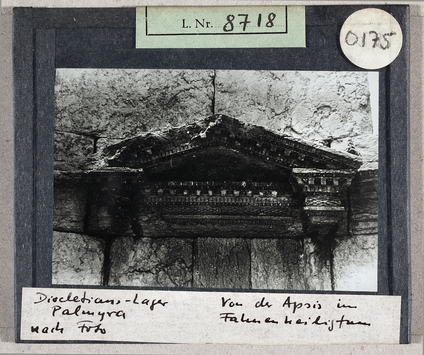 L. Nr. 8718
0175
Diocletians-Lager
Palmyra
nach Foto
Von der Apsis im
Fahnenheiligtum